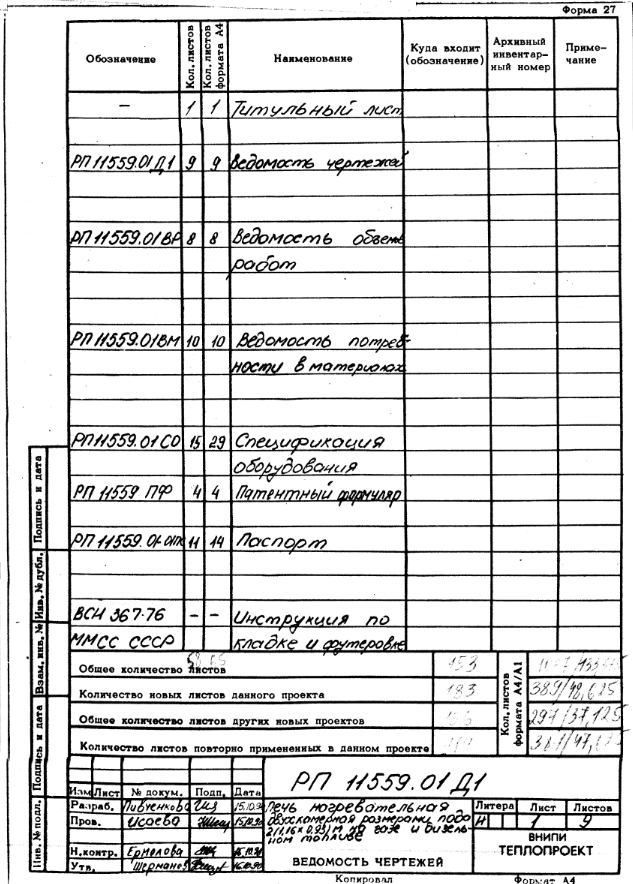 Форма 27
Обозначение
Кол. листов
Кол. листов формата А4
Наименование
Куда входит (обозначение)
Архивный инвентар-ный номер
Приме-чание
— 1 1 Титульный лист
РП 11559.01Д1 9 9 Ведомость чертежей
РП 11559.01ВР 8 8 Ведомость объема
работ
РП 11559.01ВМ 10 10 Ведомость потреб-
ности в материалах
РП 11559.01СО 15 29 Спецификация
оборудования
РП 11559 ПФ 4 4 Патентный формуляр
РП 11559.01 11 14 Паспорт
ВСН 367-76 – – Инструкция по
ММСС СССР кладке и футеровке
Общее количество листов
Количество новых листов данного проекта 183
Общее количество листов других новых проектов
Количество листов повторно примененных в данном проекте
Кол. листов формата А4/А1
389/48,625
297/37,125
Инв. № подл.
Подпись и дата
Взам. инв. №
Инв. № дубл.
Подпись и дата
РП 11559.01 Д1
Изм Лист № докум. Подп. Дата
Разраб. Пивченкова 15.10.90
Пров. Исаева
Н.контр. Ермолова
Утв. Шерманов
Печь нагревательная
двухкамерная размерами пода
2(1,16х0,93) м на газе и дизель-
ном топливе
ВЕДОМОСТЬ ЧЕРТЕЖЕЙ
Литера Лист Листов
И 1 9
ВНИПИ
ТЕПЛОПРОЕКТ
Копировал
Формат А4